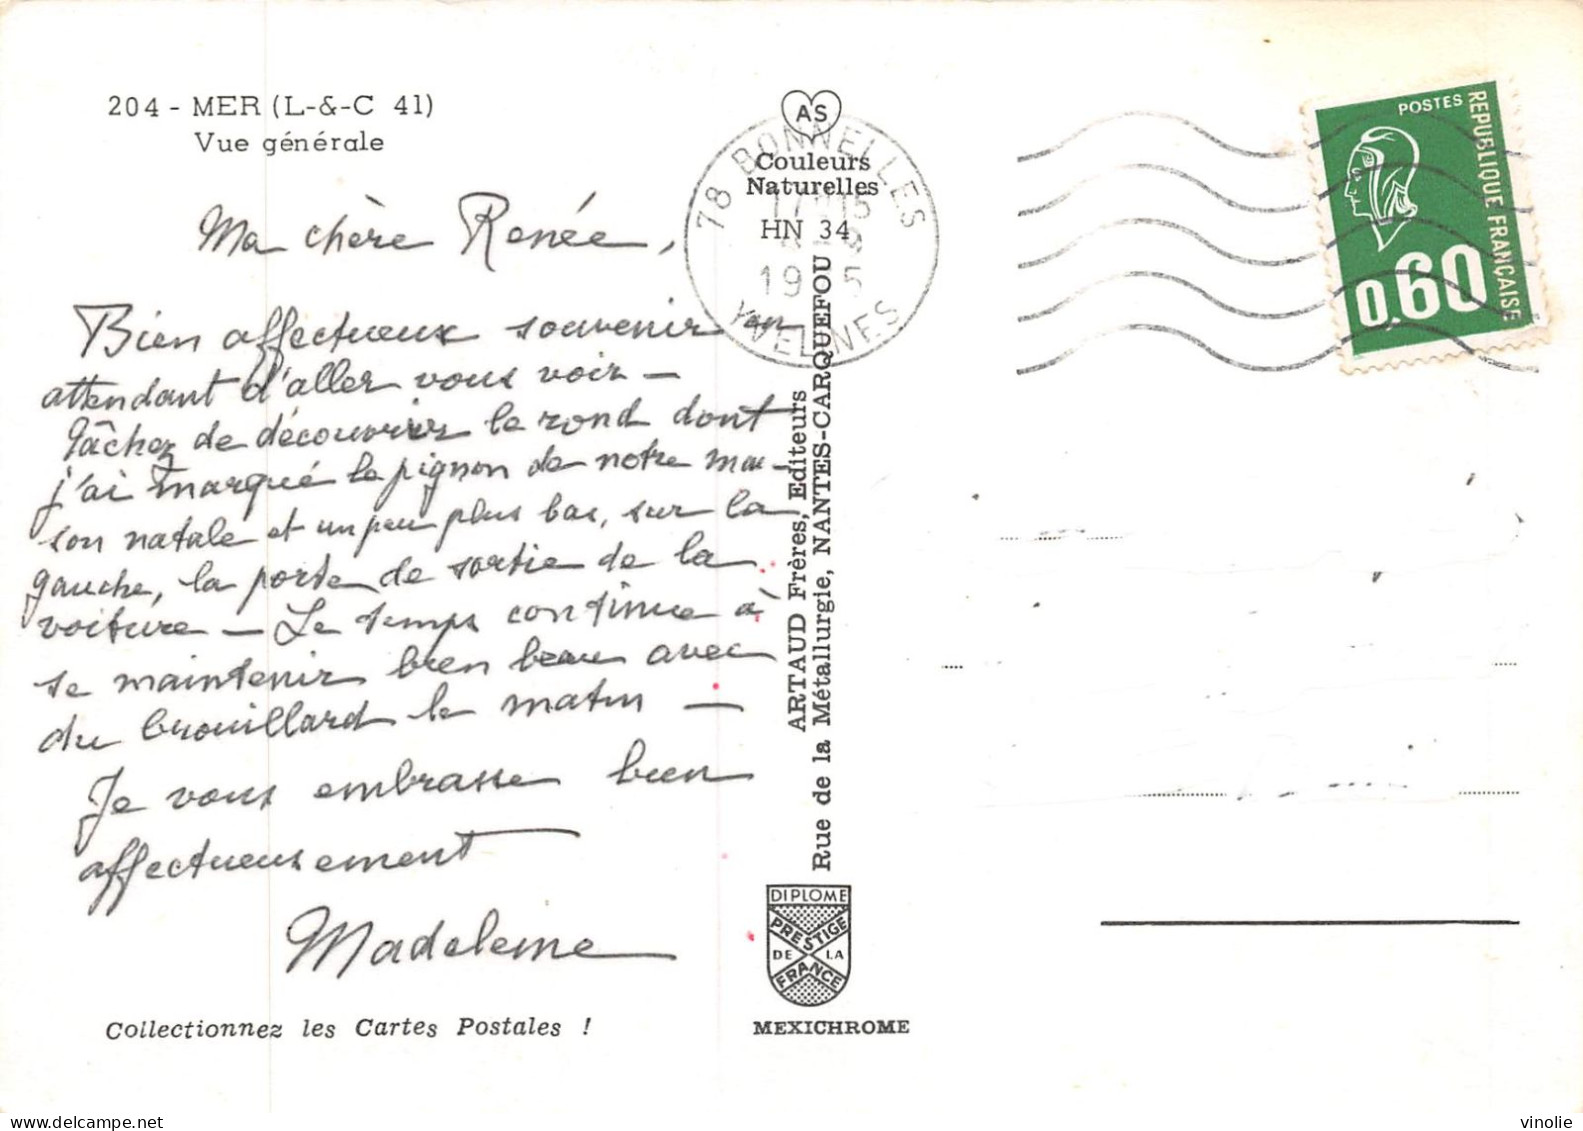 204 - MER (L-&-C 41)
Vue générale
Ma chère Renée,
Bien affectueux souvenir en
attendant d'aller vous voir —
Tâchez de découvrir le rond dont
j'ai marqué le pignon de notre mai-
son natale et un peu plus bas, sur la
gauche, la porte de sortie de la
voiture — Le temps continue à
se maintenir bien beau avec
du brouillard le matin —
Je vous embrasse bien
affectueusement
Madeleine
Collectionnez les Cartes Postales !
AS
Couleurs
Naturelles
HN 34
78 BONNELLES
YVELINES
ARTAUD Frères, Editeurs
Rue de la Métallurgie, NANTES-CARQUEFOU
DIPLOME
PRESTIGE
DE LA
FRANCE
MEXICHROME
POSTES
REPUBLIQUE FRANÇAISE
0,60
delcampe.net
vinolie